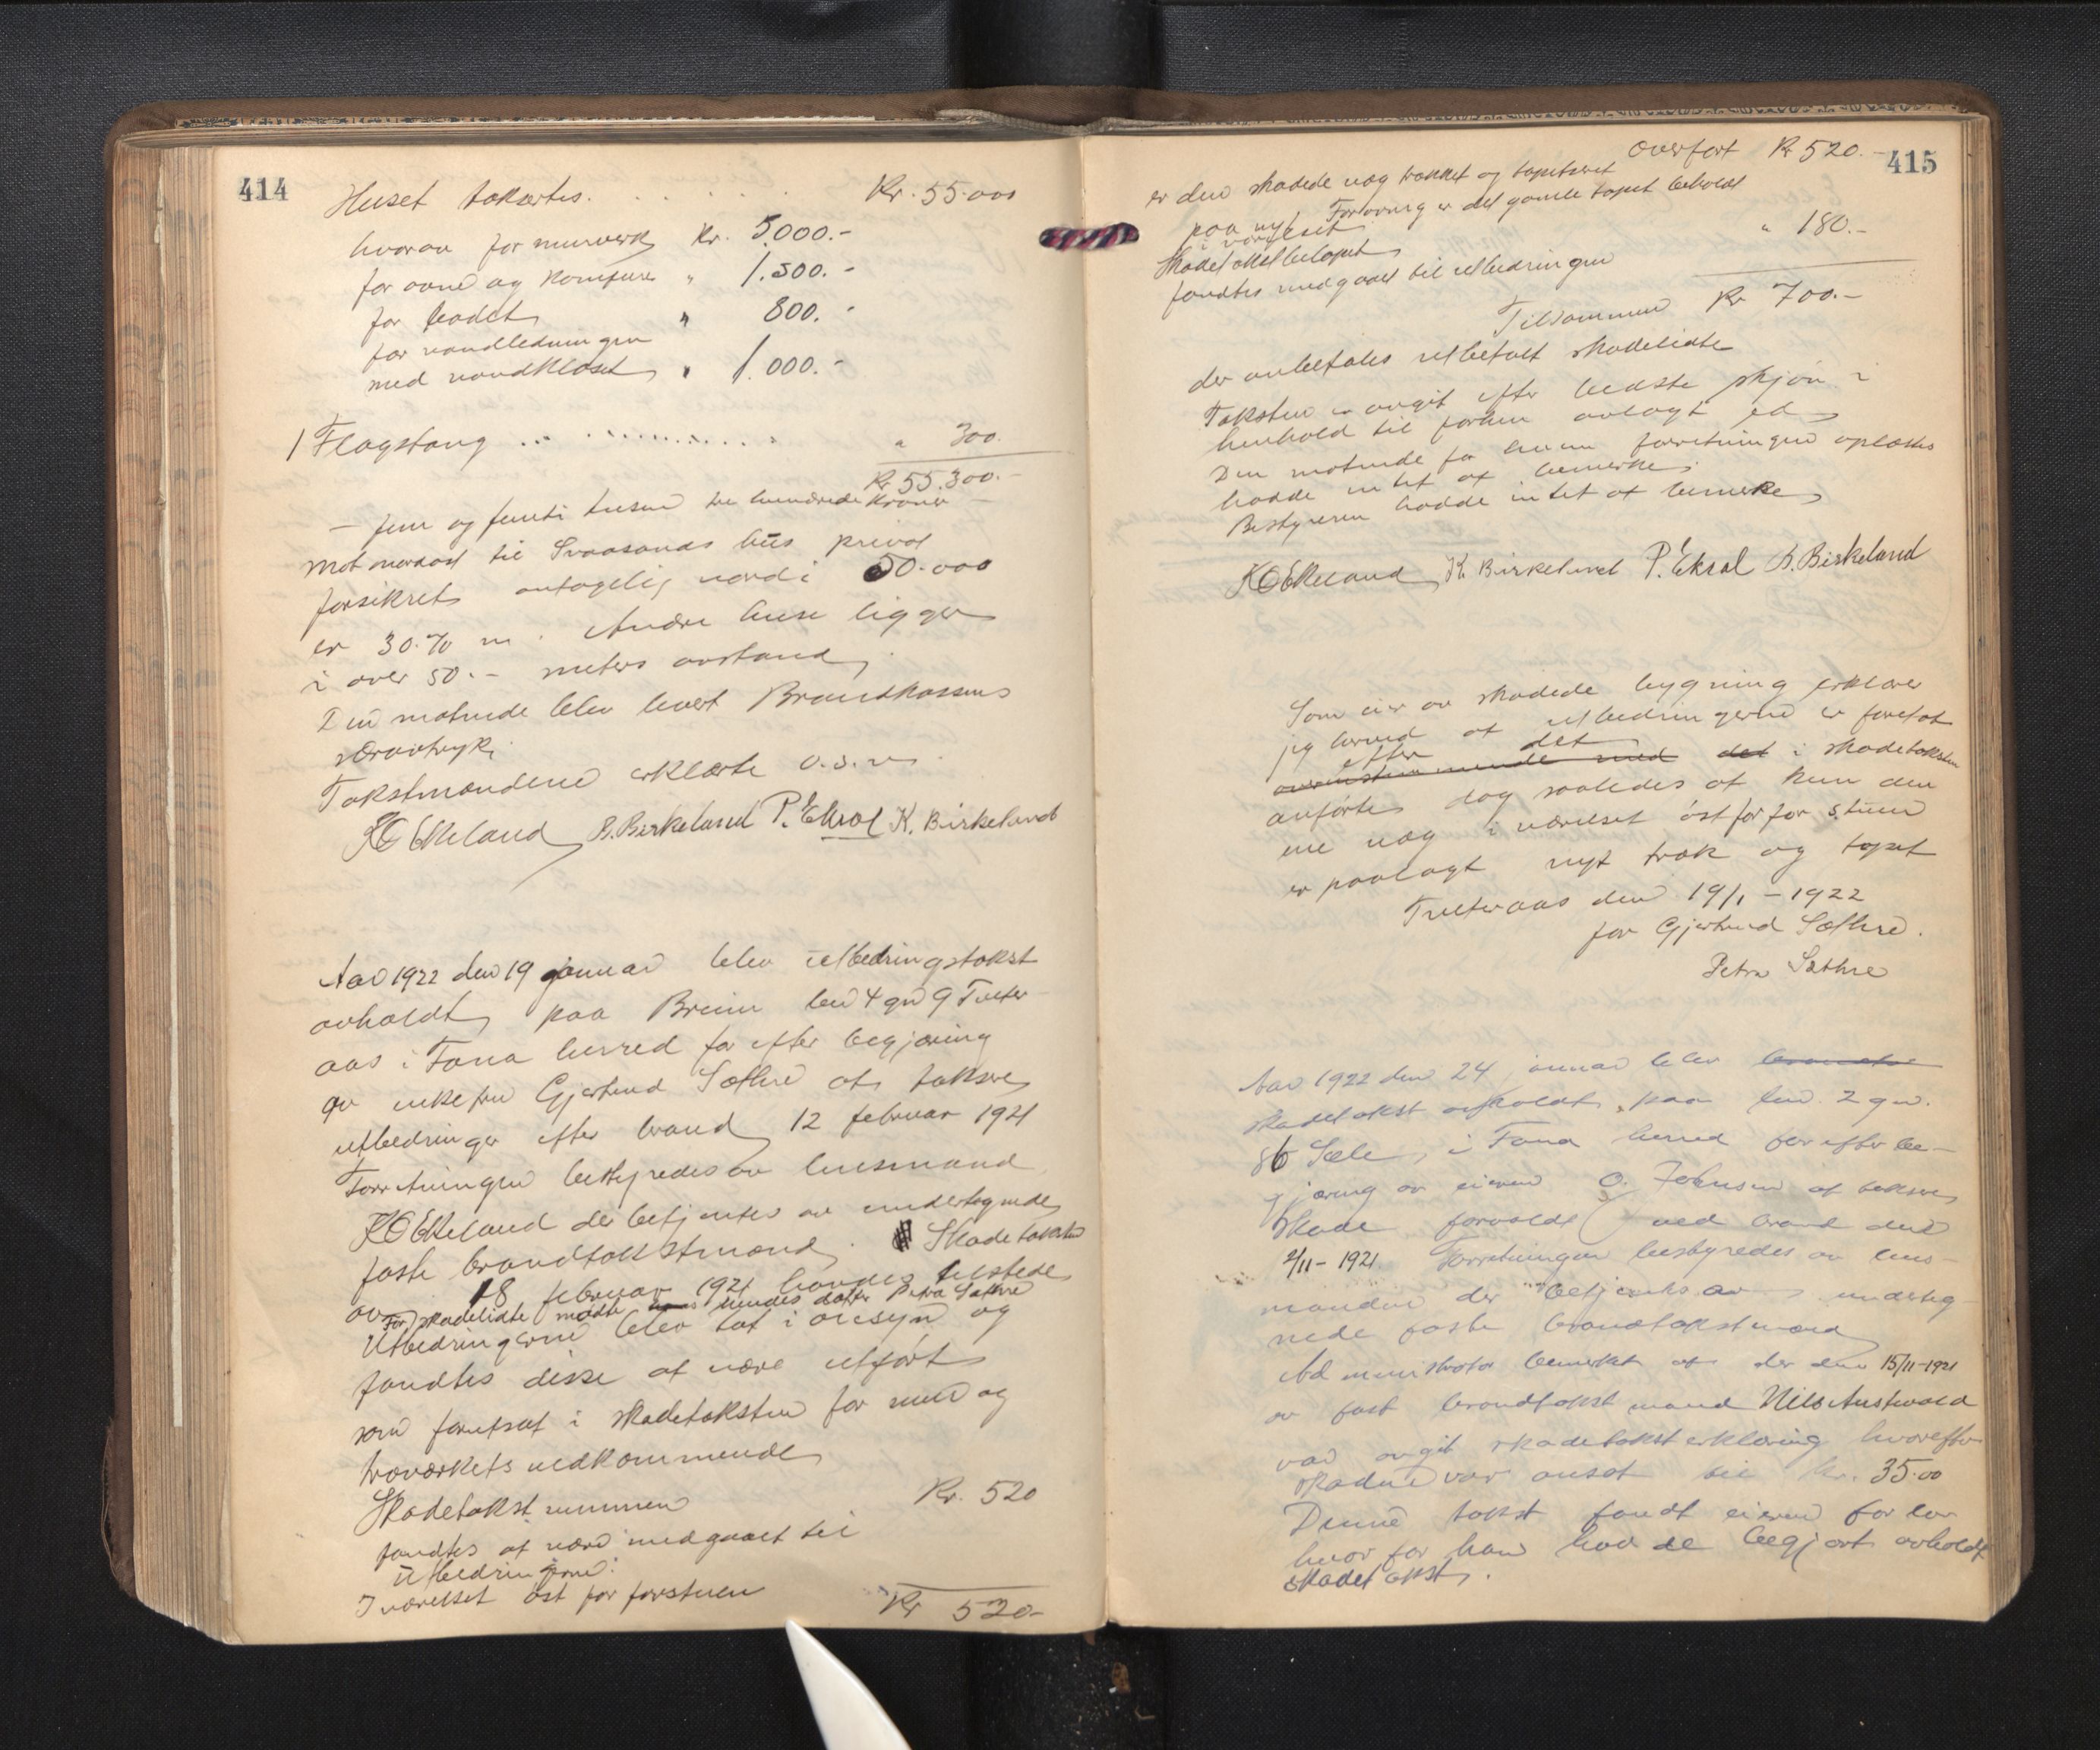 414
Huset taksertes. . . . . Kr. 55.000
hvorav for murverk Kr. 5.000.-
for ovne og komfure " 1.500.-
for badet " 800.-
for vandledningen
med vandkloset " 1.000.-
1 Flagstang ... " 300.
Kr 55.300.-
- fem og femti tusen tre hundrede kroner -
Mot nordost til Svaasands hus privat
forsikret antagelig verdi 50.000
er 30.70 m. Andre huse ligger
i over 50.- meters avstand.
Den møtende blev levert Brandkassens
særavtryk.
Takstmændene erklærte o.s.v.
KO Ekeland B. Birkeland P. Ekrol K. Birkeland
Aar 1922 den 19 januar blev utbedringstakst
avholdt paa Breim bno 4 gno 9 Tveter-
aas i Fana herred for efter begjæring
av enkefru Gjertrud Sæthre at taksere
utbedringer efter brand 12 februar 1921
Forretningen bestyredes av lensmand
KO Ekeland der betjentes av undertegnede
faste brandtakstmænd. Skadetaksten
av 18 februar 1921 havdes tilstede
For skadelidte møtte hendes datter Petra Sæthre
Utbedringerne blev tat i øiesyn og
fandtes disse at være utført
som forutsat i skadetaksten for mur og
træverkets vedkommende
Skadetakstsummen Kr. 520
fandtes at være medgaaet til
utbedringerne.
I værelset øst for forstuen
Kr 520-
415
Overført Kr 520.-
er den skadede væg trækket og tapetseret
paa nyt. Forøvrig er det gamle tapet beholdt
i værelset
Skadetakstbeløpet " 180.-
fandtes medgaaet til utbedringen
Tilsammen Kr 700.-
der anbefales utbetalt skadelidte
Taksten er avgit efter bedste skjøn i
henhold til forhen avlagt ed
Den møtende for hvem forretningen oplæstes
hadde intet at bemerke.
Bestyreren hadde intet at bemerke
KO Ekeland K. Birkeland P. Ekrol B. Birkeland
Som eier av skadede bygning erklærer
jeg herved at utbedringerne er foretat
efter det
overensstemmende med det i skadetaksten
anførte dog saaledes at kun den
ene væg i værelset øst for for stuen
er paalagt nyt træk og tapet
Tveteraas den 19/1 - 1922
for Gjertrud Sæthre.
Petra Sæthre
Aar 1922 den 24 januar blev
skadetakst avholdt paa bno. 2 gno.
86 Sæle, i Fana herred for efter be-
gjæring av eieren O. Johnsen at taksere
skade forvoldt ved brand den
2/11-1921. Forretningen bestyredes av lens-
manden der betjentes av underteg-
nede faste brandtakstmænd
Administrator bemerket at der den 15/11-1921
av fast brandtakstmand Nils Austevold
var avgit skadetaksterklæring hvorefter
skaden var ansat til kr. 35.00
Denne takst fandt eieren for lav
hvorfor han havde begjært avholdt
skadetakst.